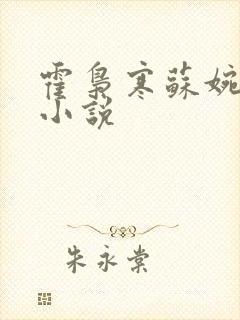 霍梟寒蘇婉
小說
朱永棠